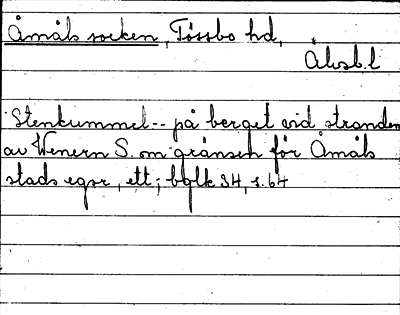 Åmåls socken, Tössbo hd,
Älvsb.l
Stenkummel -- på berget vid stranden
av Wenern S. om gränsen för Åmåls
stads egor, ett; bqlk 34, s. 64